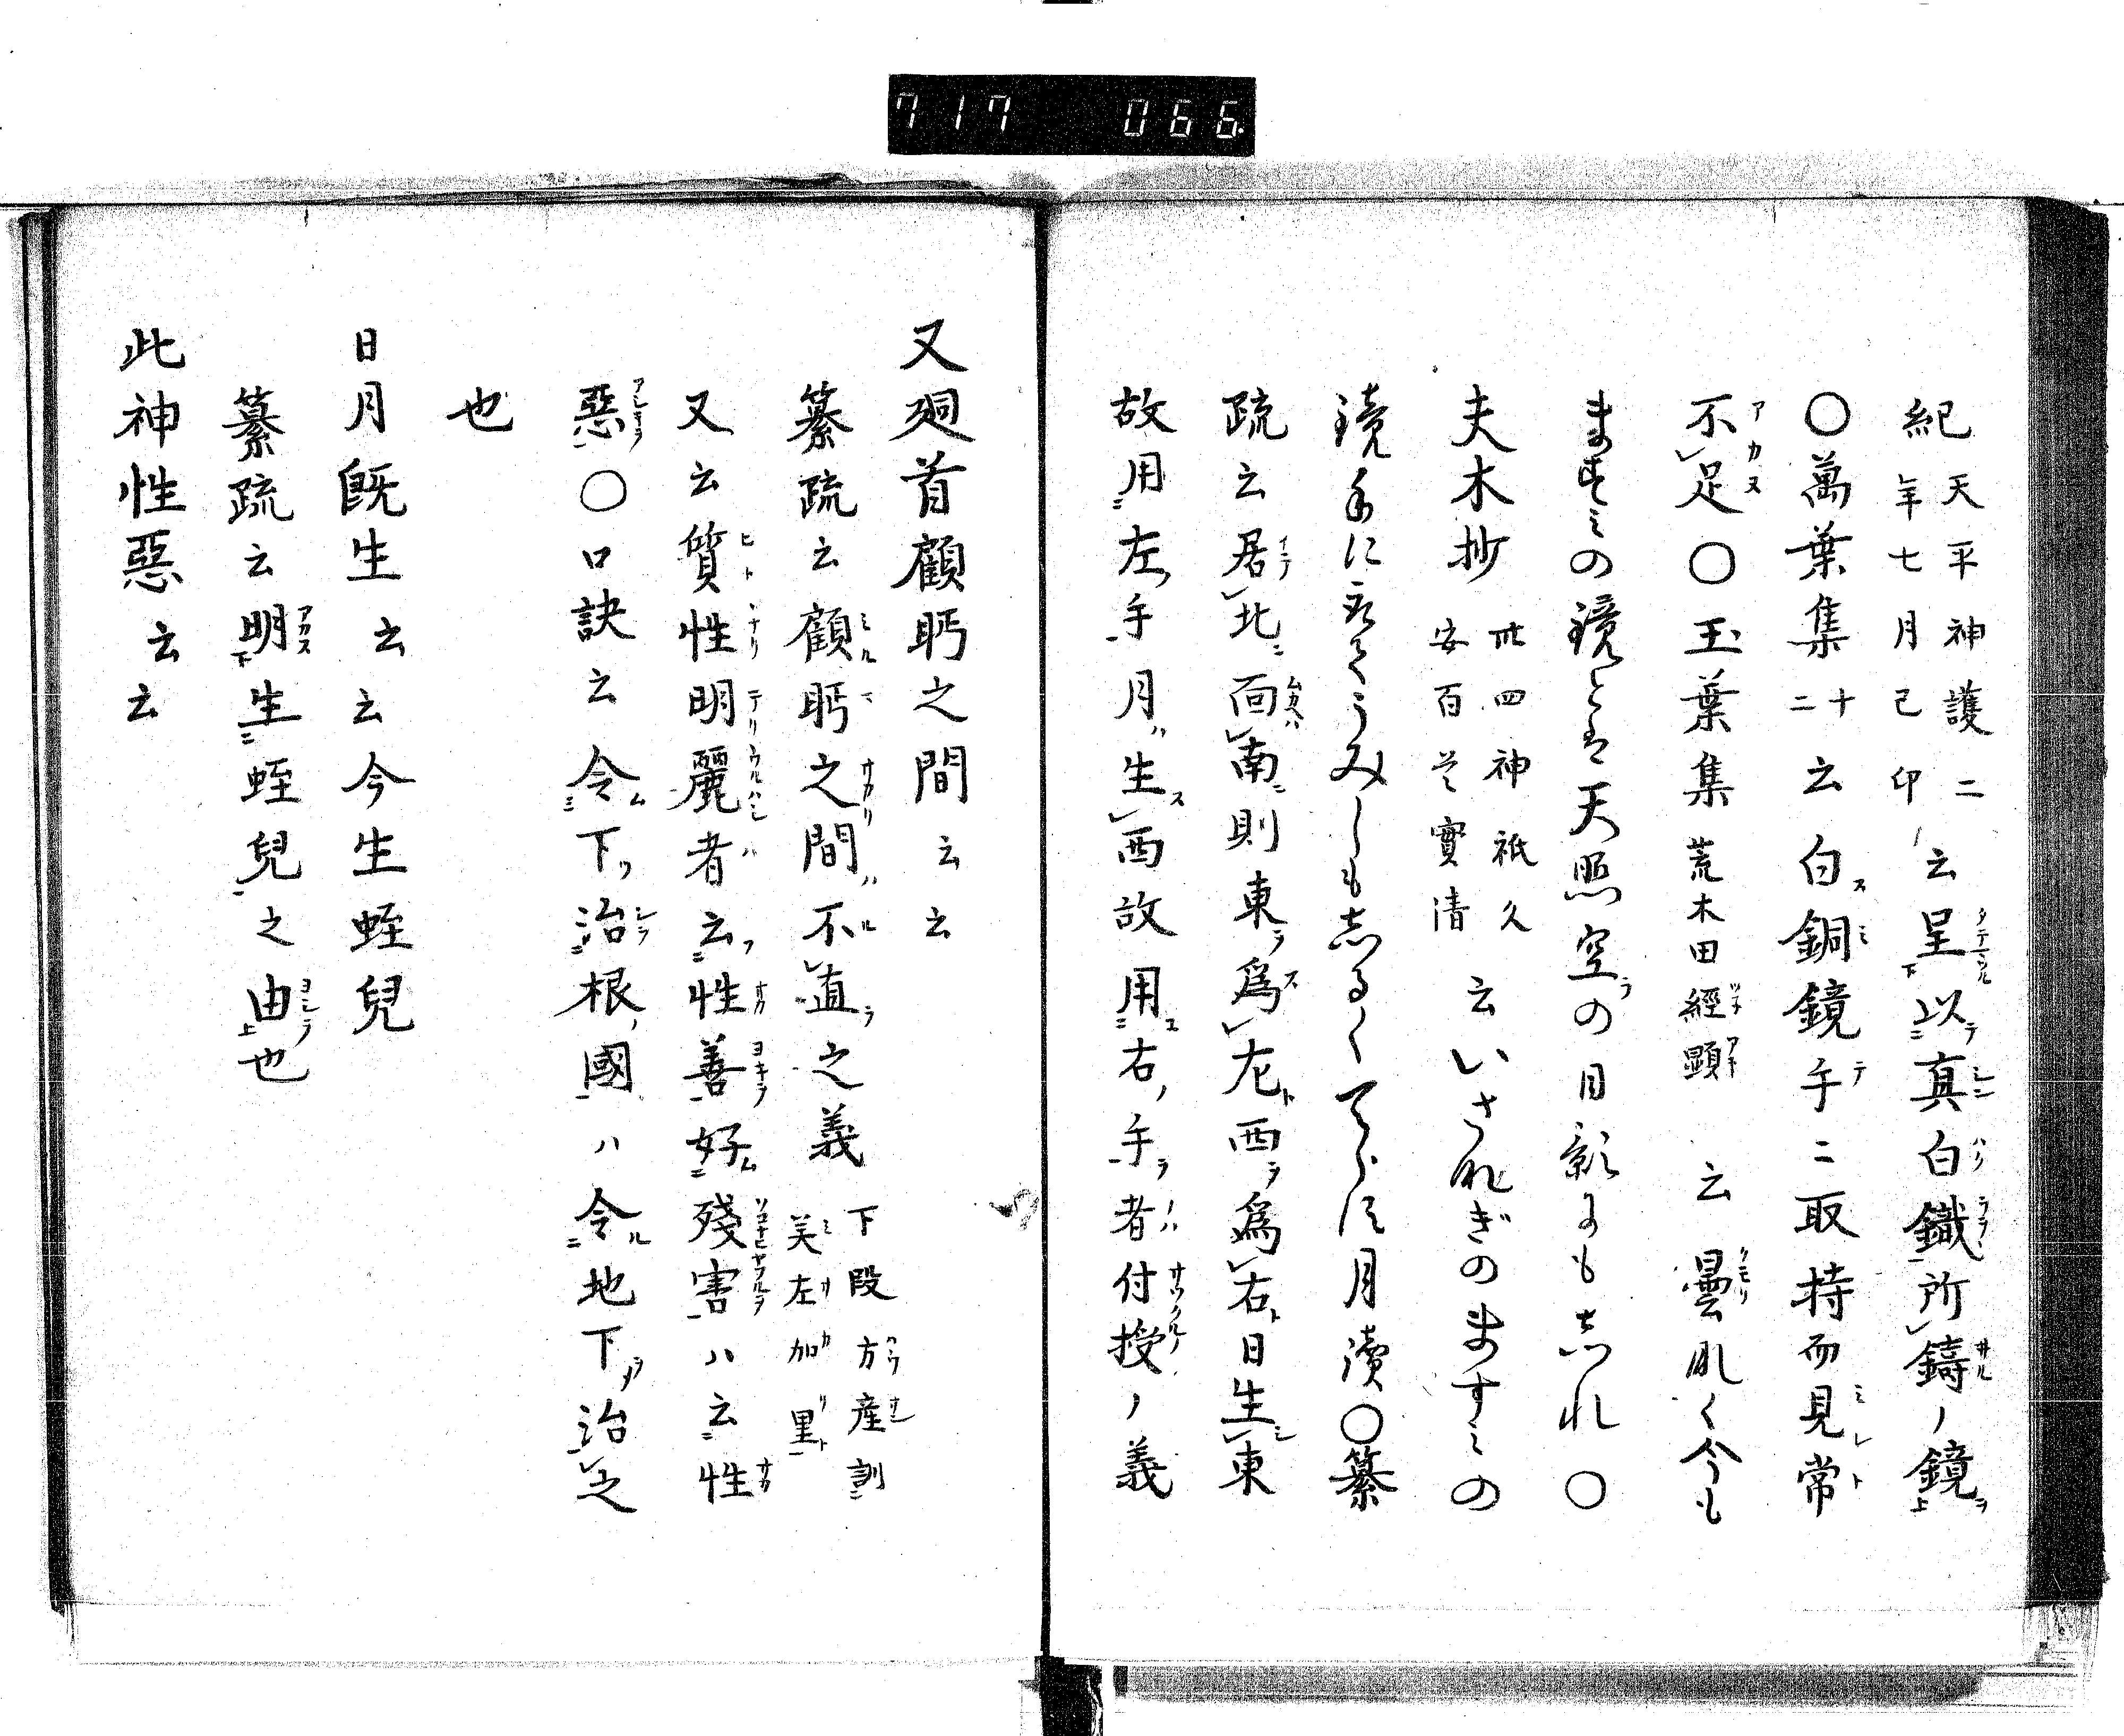 717 066
紀天平神護二年七月己卯云呈以真白鐵所鑄ノ鏡
〇萬葉集十二云白銅鏡手ニ取持而見常
不足〇玉葉集荒木田經顕云曇れく今も
ますミの鏡とそ天照空の月影にも志れ〇
夫木抄卅四神祇久安百首實清云いされぎのますミの
鏡手にとりてうみしも志るくてらす月讀〇纂
疏云居北面南則東爲左西爲右日生東
故用左手月生西故用右手者付授ノ義
又廻首顧眄之間云云
纂疏云顧眄之間不直之義下段方産訓美左加里
又云質性明麗者云性善好殘害ハ云性
惡〇口訣云令下治根國ハ令地下治之
也
日月既生云云今生蛭兒
纂疏云明生蛭兒之由也
此神性惡云云